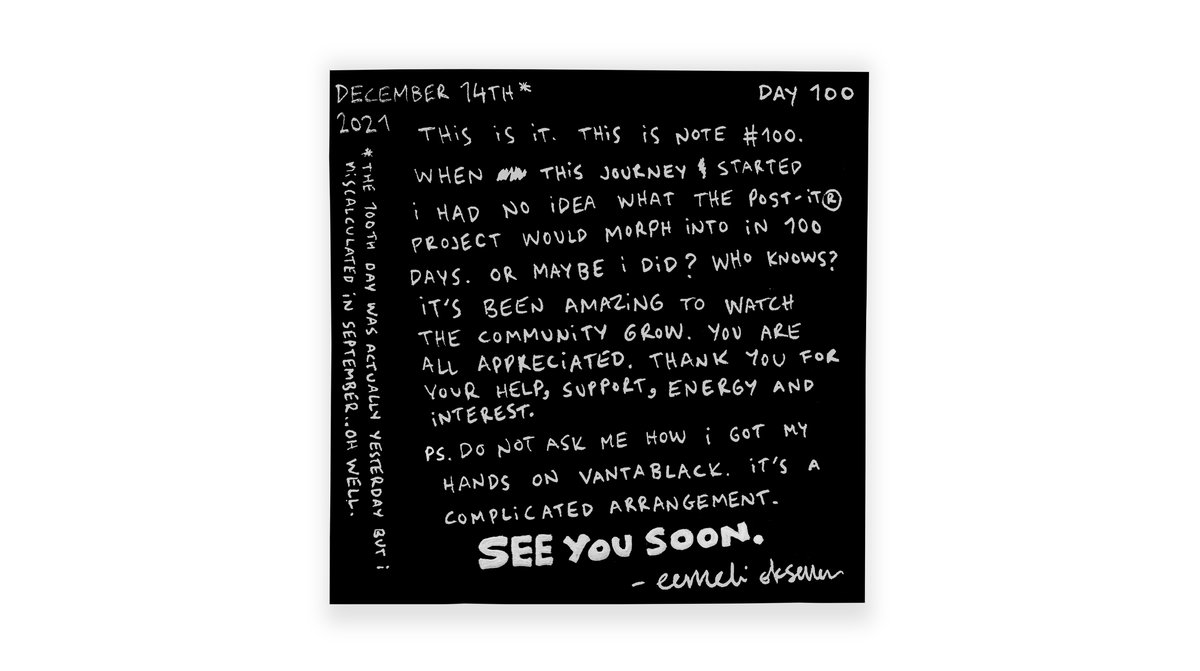 DECEMBER 14TH*
2021
DAY 100
THiS iS iT. THiS iS NOTE #100.
WHEN THiS JOURNEY STARTED
i HAD NO iDEA WHAT THE POST-iT®
PROJECT WOULD MORPH iNTO iN 100
DAYS. OR MAYBE i DiD? WHO KNOWS?
iT'S BEEN AMAZiNG TO WATCH
THE COMMUNiTY GROW. YOU ARE
ALL APPRECiATED. THANK YOU FOR
YOUR HELP, SUPPORT, ENERGY AND
iNTEREST.
PS. DO NOT ASK ME HOW i GOT MY
HANDS ON VANTABLACK. iT'S A
COMPLiCATED ARRANGEMENT.
SEE YOU SOON.
- eemeli
*THE 100TH DAY WAS ACTUALLY YESTERDAY BUT i
MiSCALCULATED iN SEPTEMBER..OH WELL.